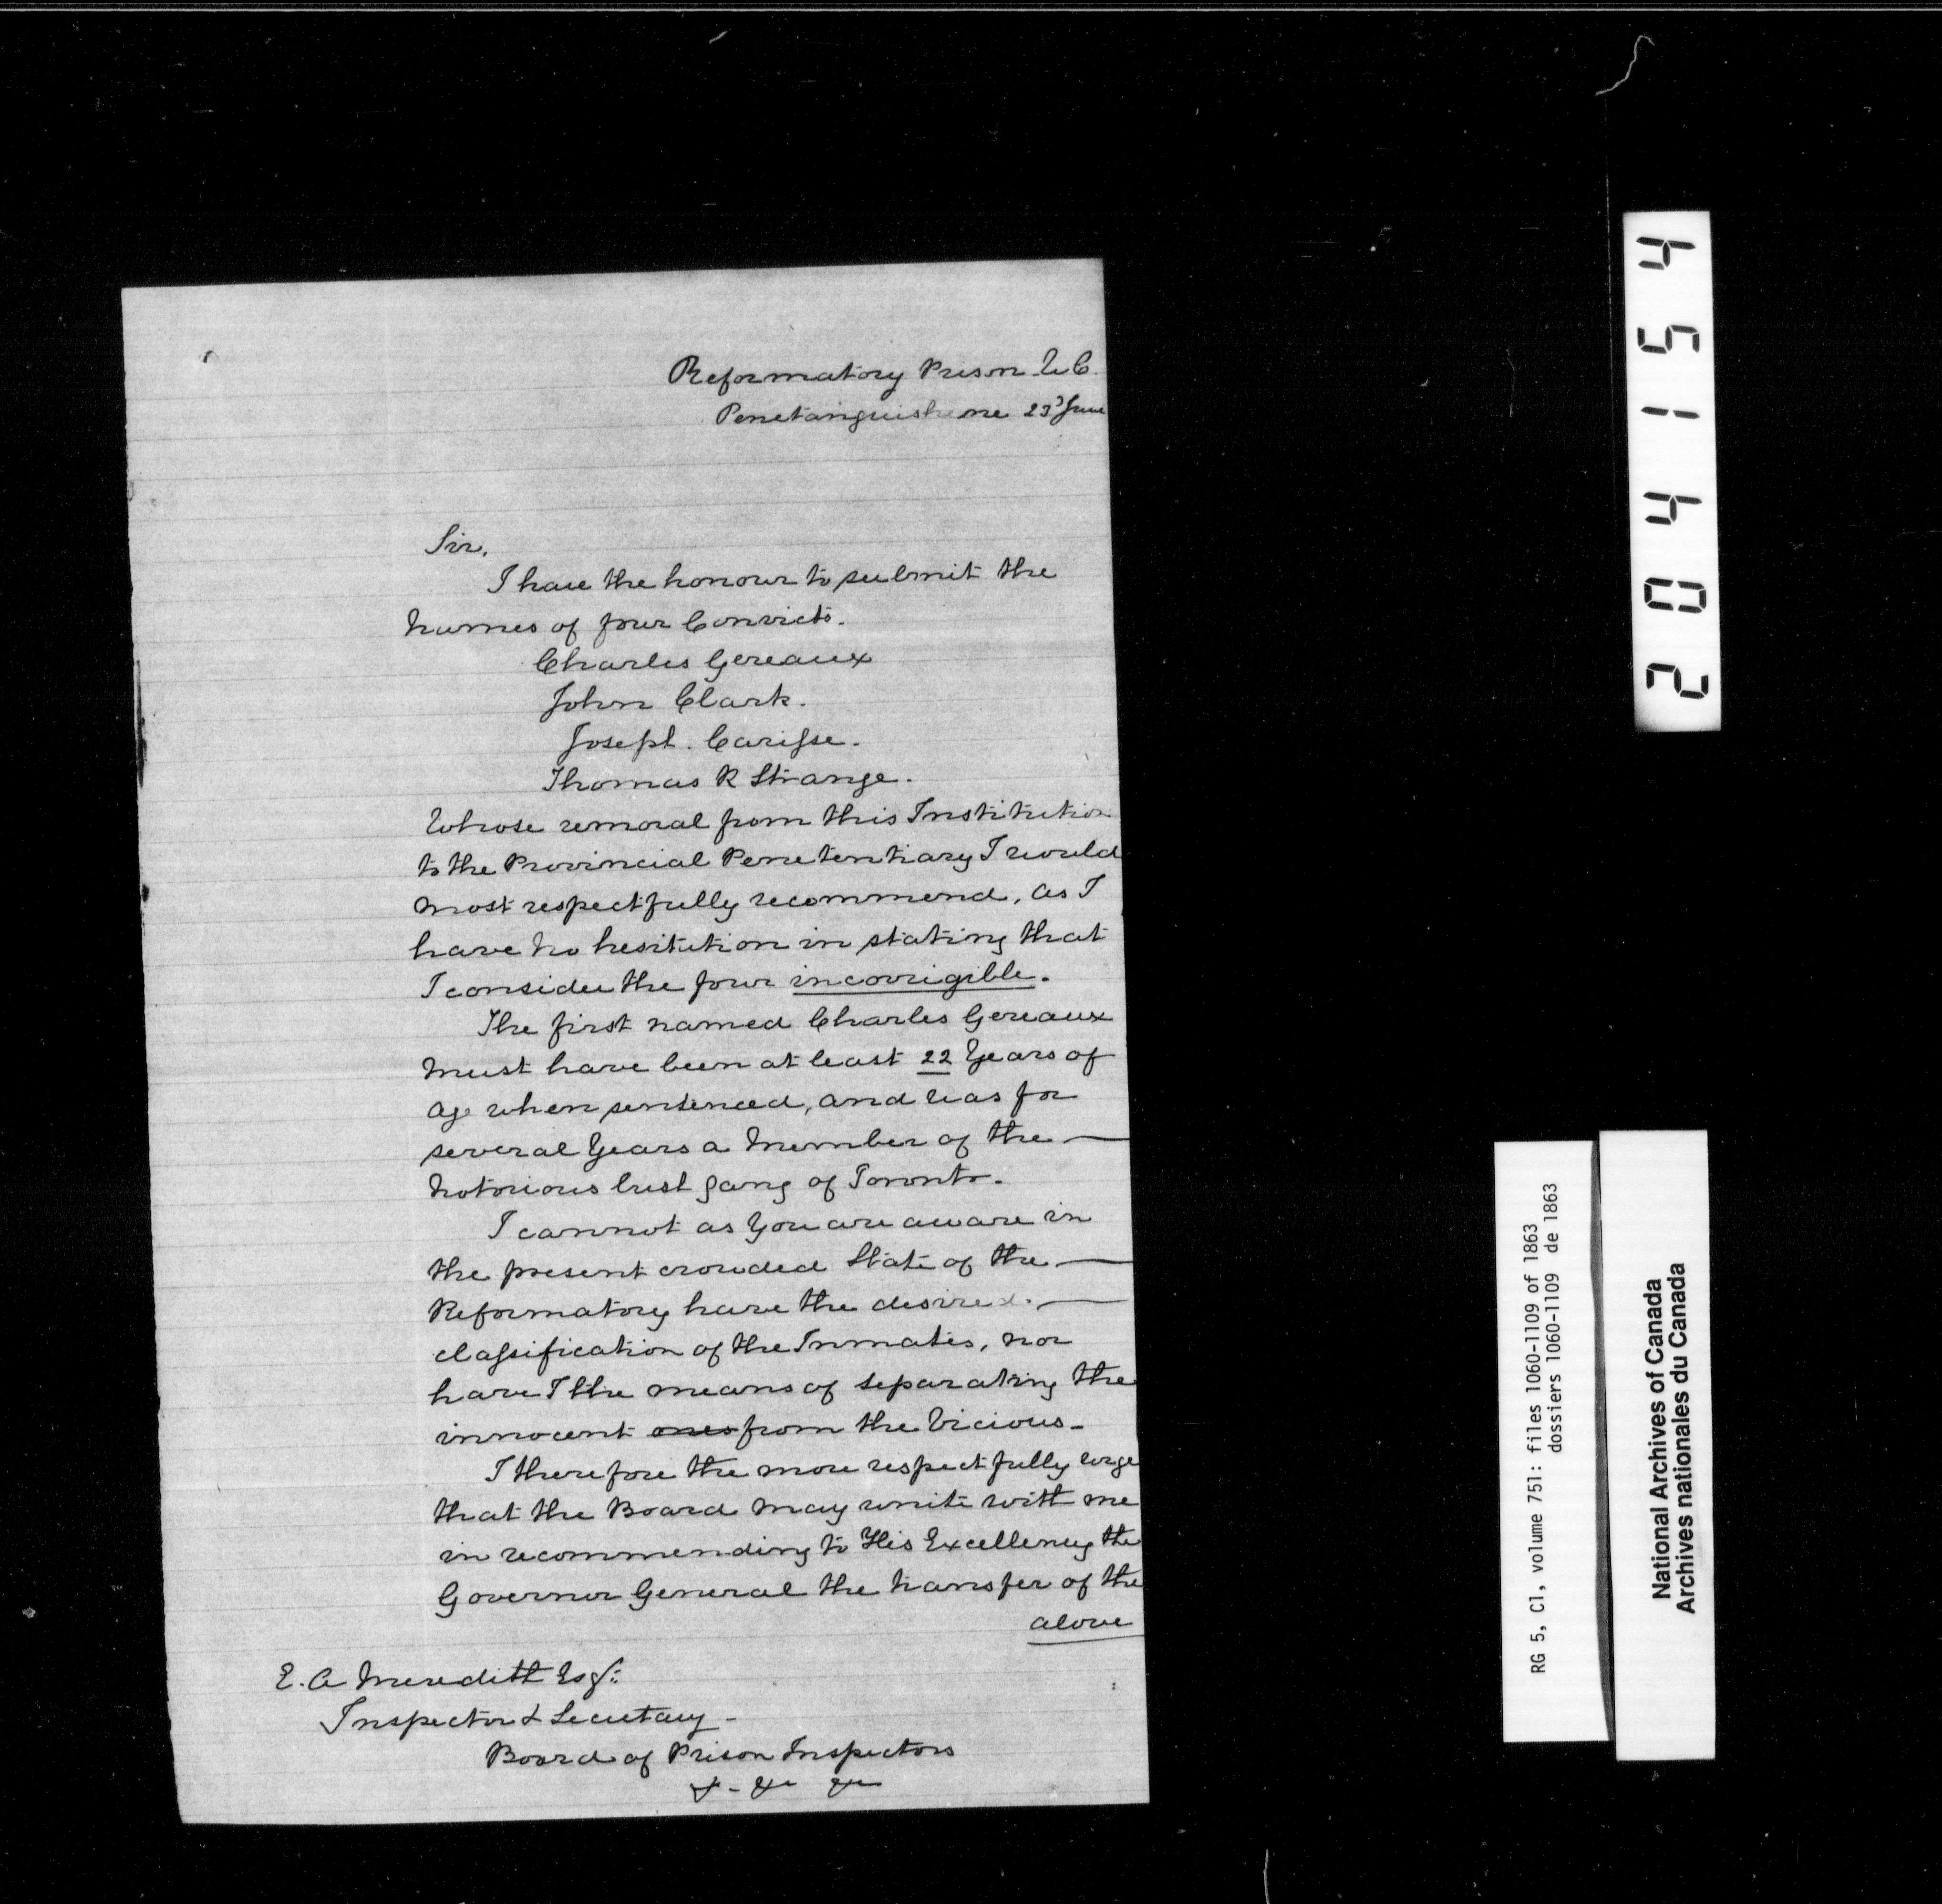 Reformatory Prison U.C.
Penetanguishene 23d June
Sir,
I have the honour to submit the
Names of four Convicts.
Charles Gereaux
John Clark.
Joseph. Carisse.
Thomas R Strange.
Whose removal from this Institution
to the Provincial Penetentiary I would
most respectfully recommend, as I
have no hesitation in stating that
I consider the four incorrigible.
The first named Charles Gereaux
Must have been at least 22 Years of
age when sentenced, and was for
several Years a Member of the —
Notorious gang of Toronto.
I cannot as You are aware in
the present crowded State of the —
Reformatory have the desired. —
classification of the Inmates, nor
have I the means of separating the
innocent ones from the Vicious -
I therefore the more respectfully urge
that the Board may unite with me
in recommending to His Excellency the
Governor General the transfer of the
above
E. A Meredith Esqr:
Inspector & Secretary -
Board of Prison Inspectors
&- &c &c
204154
RG 5, C1, volume 751: files 1060-1109 of 1863
dossiers 1060-1109 de 1863
National Archives of Canada
Archives nationales du Canada